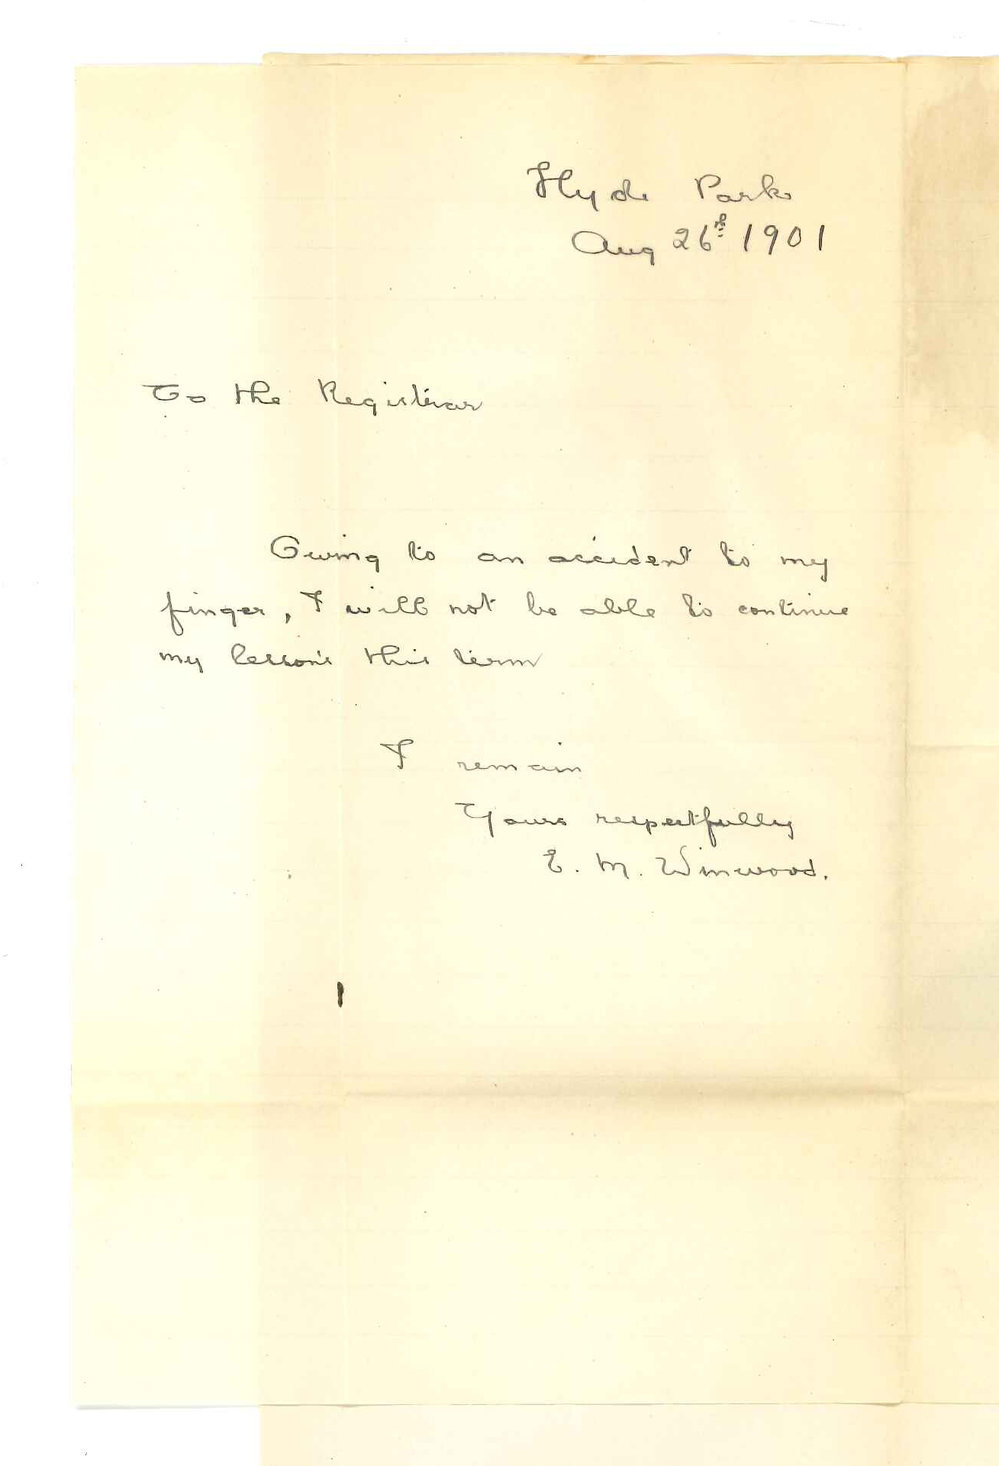 Hyde Park
Aug 26th 1901
To the Registrar
Owing to an accident to my
finger, I will not be able to continue
my lessons this term
I remain
Yours respectfully
E. M. Winwood.